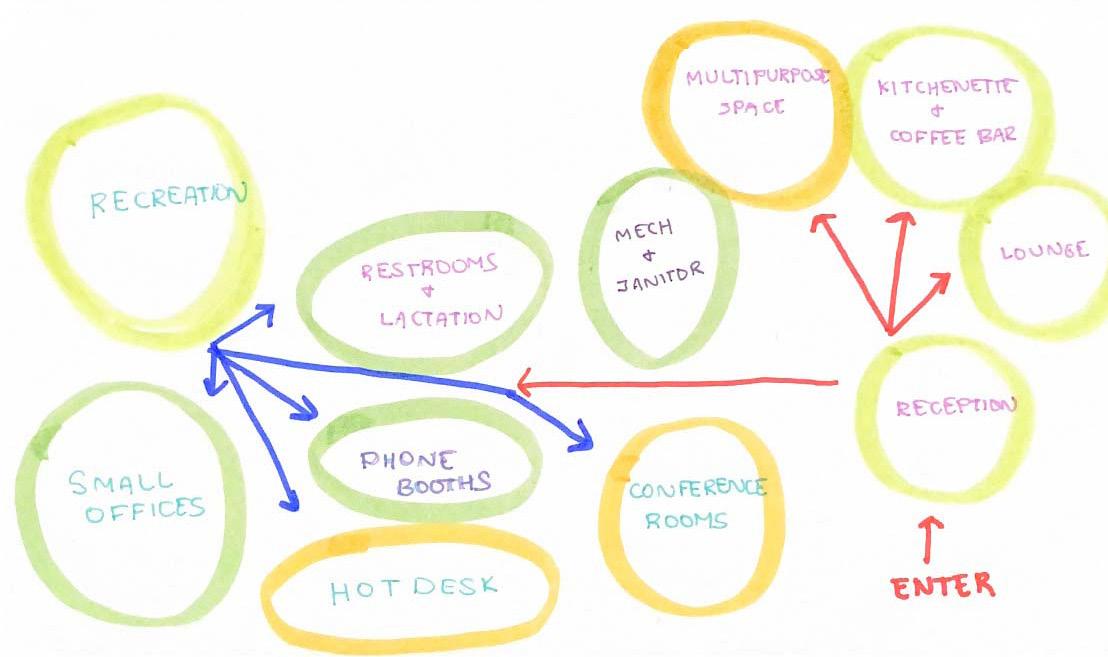 MULTIPURPOSE
SPACE
KITCHENETTE
&
COFFEE BAR
RECREATION
RESTROOMS
&
LACTATION
MECH
&
JANITOR
LOUNGE
RECEPTION
SMALL
OFFICES
PHONE
BOOTHS
CONFERENCE
ROOMS
HOT DESK
ENTER